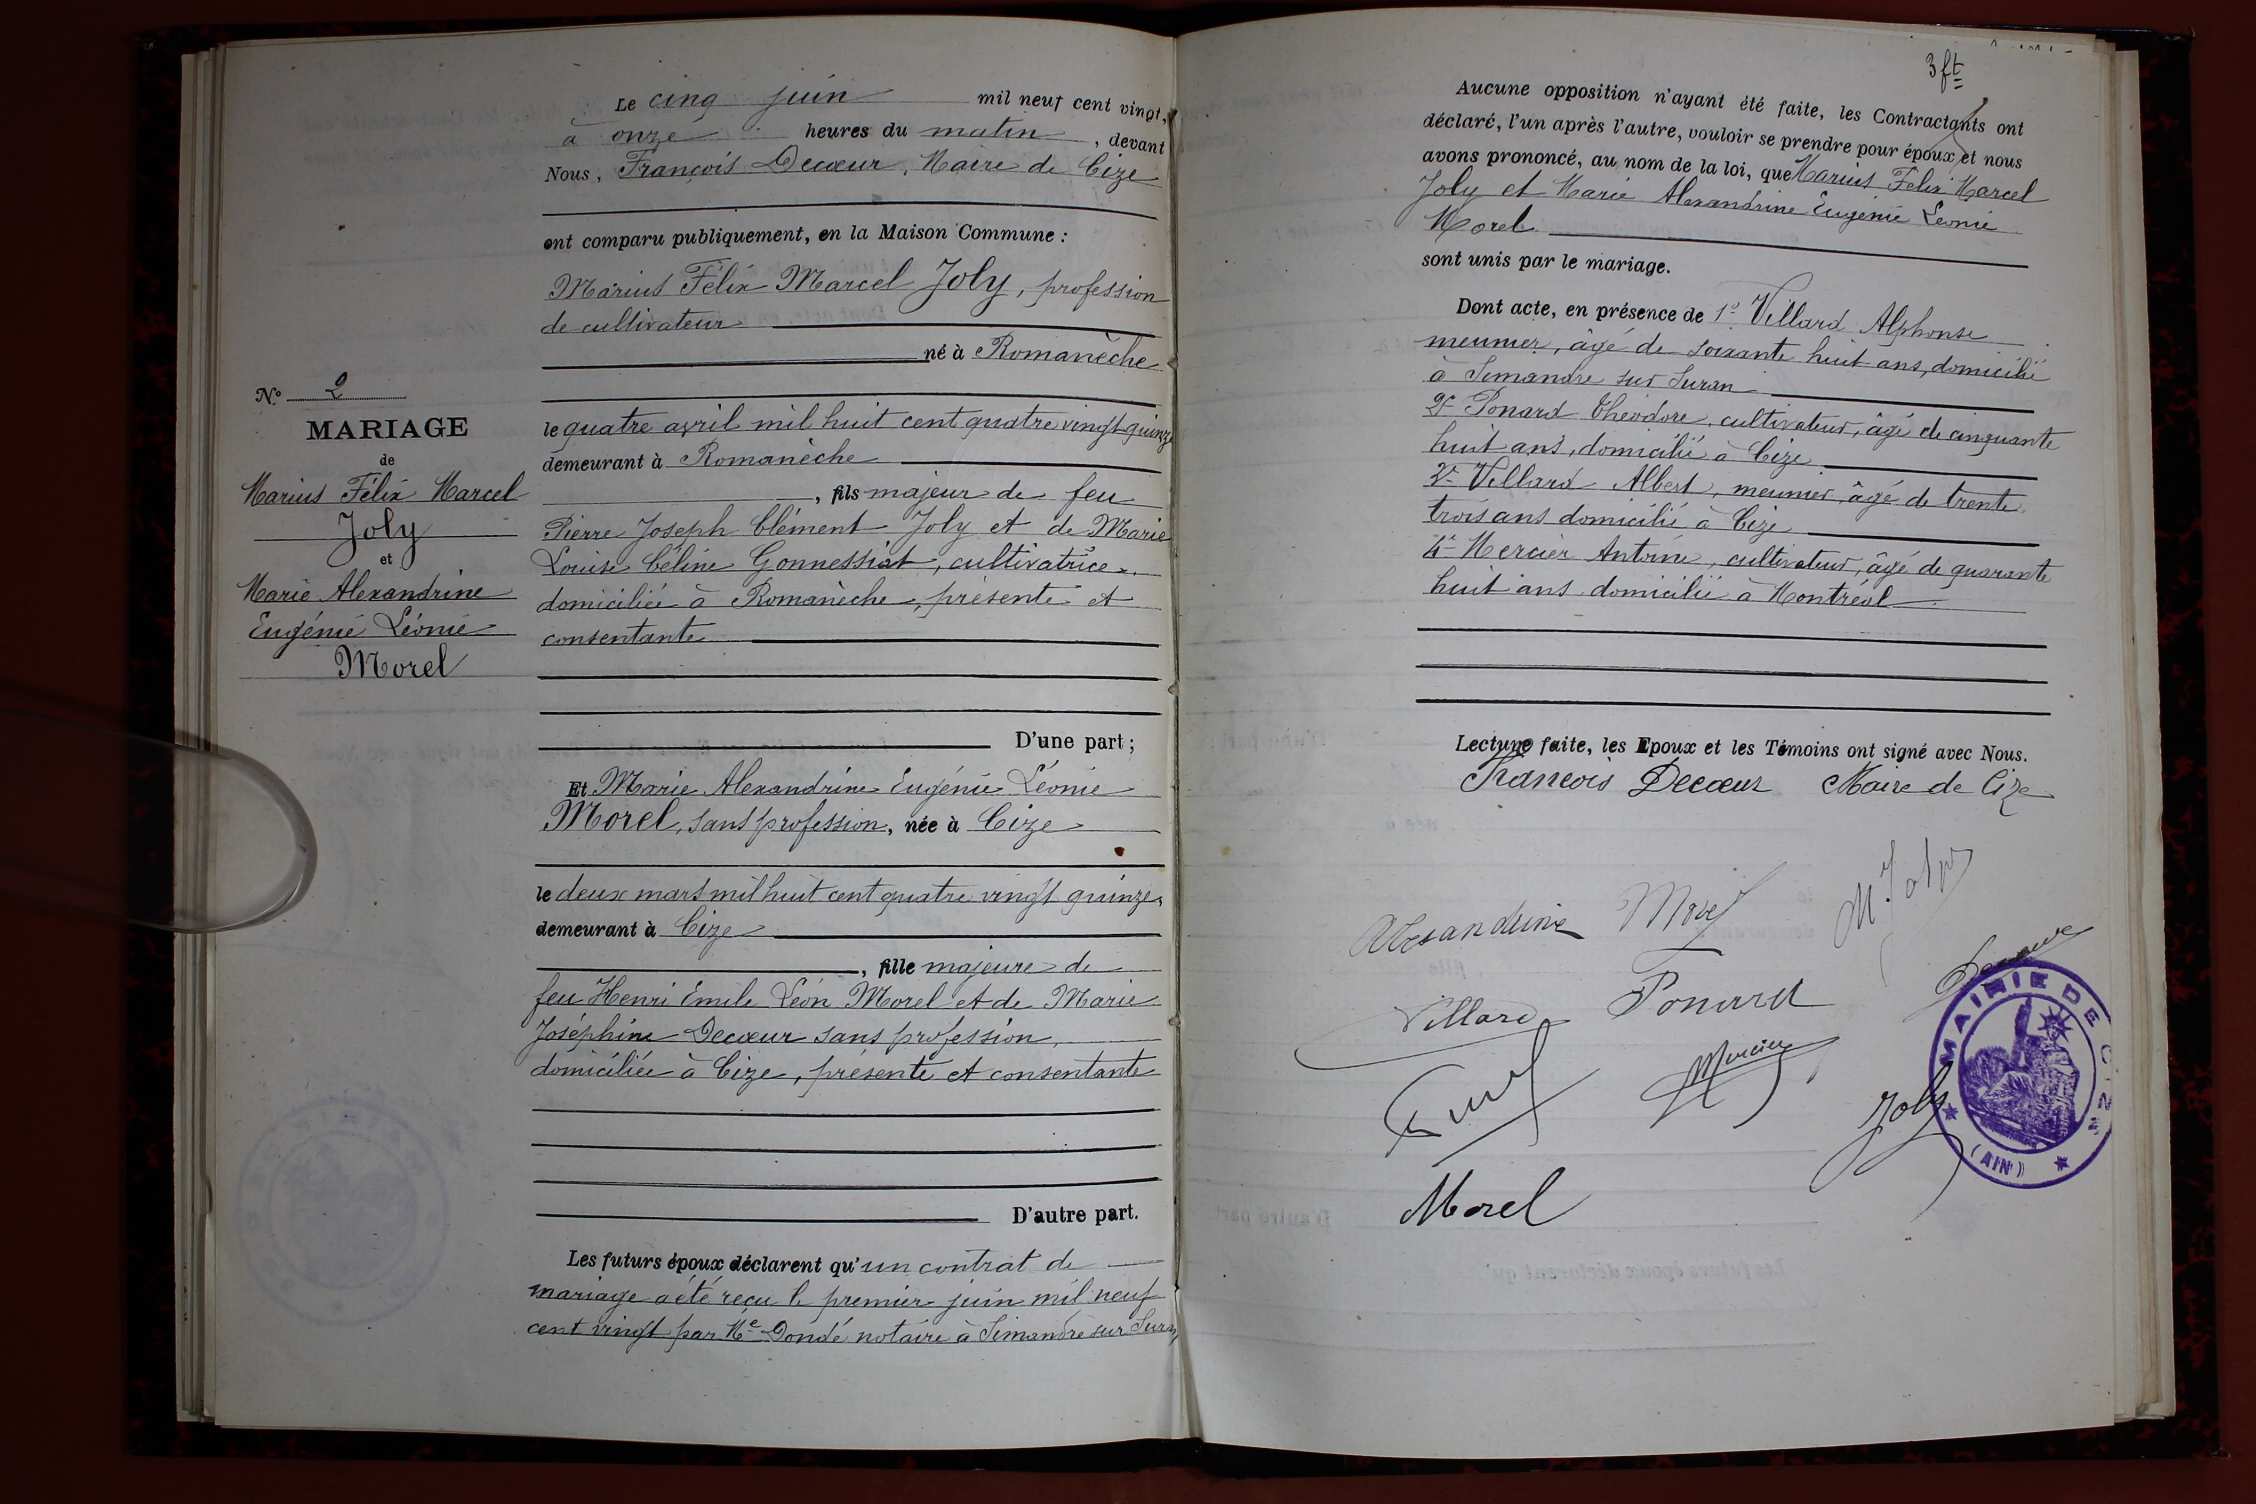 Le cinq juin mil neuf cent vingt,
à onze heures du matin, devant
Nous, François Decœur, Maire de Cize
ont comparu publiquement, en la Maison Commune :
Marius Félix Marcel Joly, profession
de cultivateur
né à Romanèche
le quatre avril mil huit cent quatre vingt quinze
demeurant à Romanèche
, fils majeur de feu
Pierre Joseph Clément Joly et de Marie
Louise Céline Gonnessiat, cultivatrice,
domiciliée à Romanèche, présente et
consentante
D'une part ;
Et Marie Alexandrine Eugénie Léonie
Morel, sans profession, née à Cize
le deux mars mil huit cent quatre vingt quinze,
demeurant à Cize
, fille majeure de
feu Henri Emile Léon Morel et de Marie
Joséphine Decœur sans profession,
domiciliée à Cize, présente et consentante
D'autre part.
Les futurs époux déclarent qu'un contrat de
mariage a été reçu le premier juin mil neuf
cent vingt par Me Dondé notaire à Simandre sur Suran
N.o 2
MARIAGE
de
Marius Félix Marcel
Joly
et
Marie Alexandrine
Eugénie Léonie
Morel
3 ft
Aucune opposition n'ayant été faite, les Contractants ont
déclaré, l'un après l'autre, vouloir se prendre pour époux, et nous
avons prononcé, au nom de la loi, que Marius Felix Marcel
Joly et Marie Alexandrine Eugénie Léonie
Morel
sont unis par le mariage.
Dont acte, en présence de 1o Villard Alphonse
meunier, âgé de soixante huit ans, domicilié
à Simandre sur Suran
2o Ponard Théodore, cultivateur, âgé de cinquante
huit ans, domicilié à Cize
3o Villard Albert, meunier, âgé de trente
trois ans domicilié à Cize
4o Mercier Antoine, cultivateur, âgé de quarante
huit ans domicilié à Montréal
Lecture faite, les Epoux et les Témoins ont signé avec Nous.
François Decœur Maire de Cize
Alexandrine Morel M. Joly
Villard Ponard
Mercier
Joly
Morel
MAIRIE DE CIZE
(AIN)